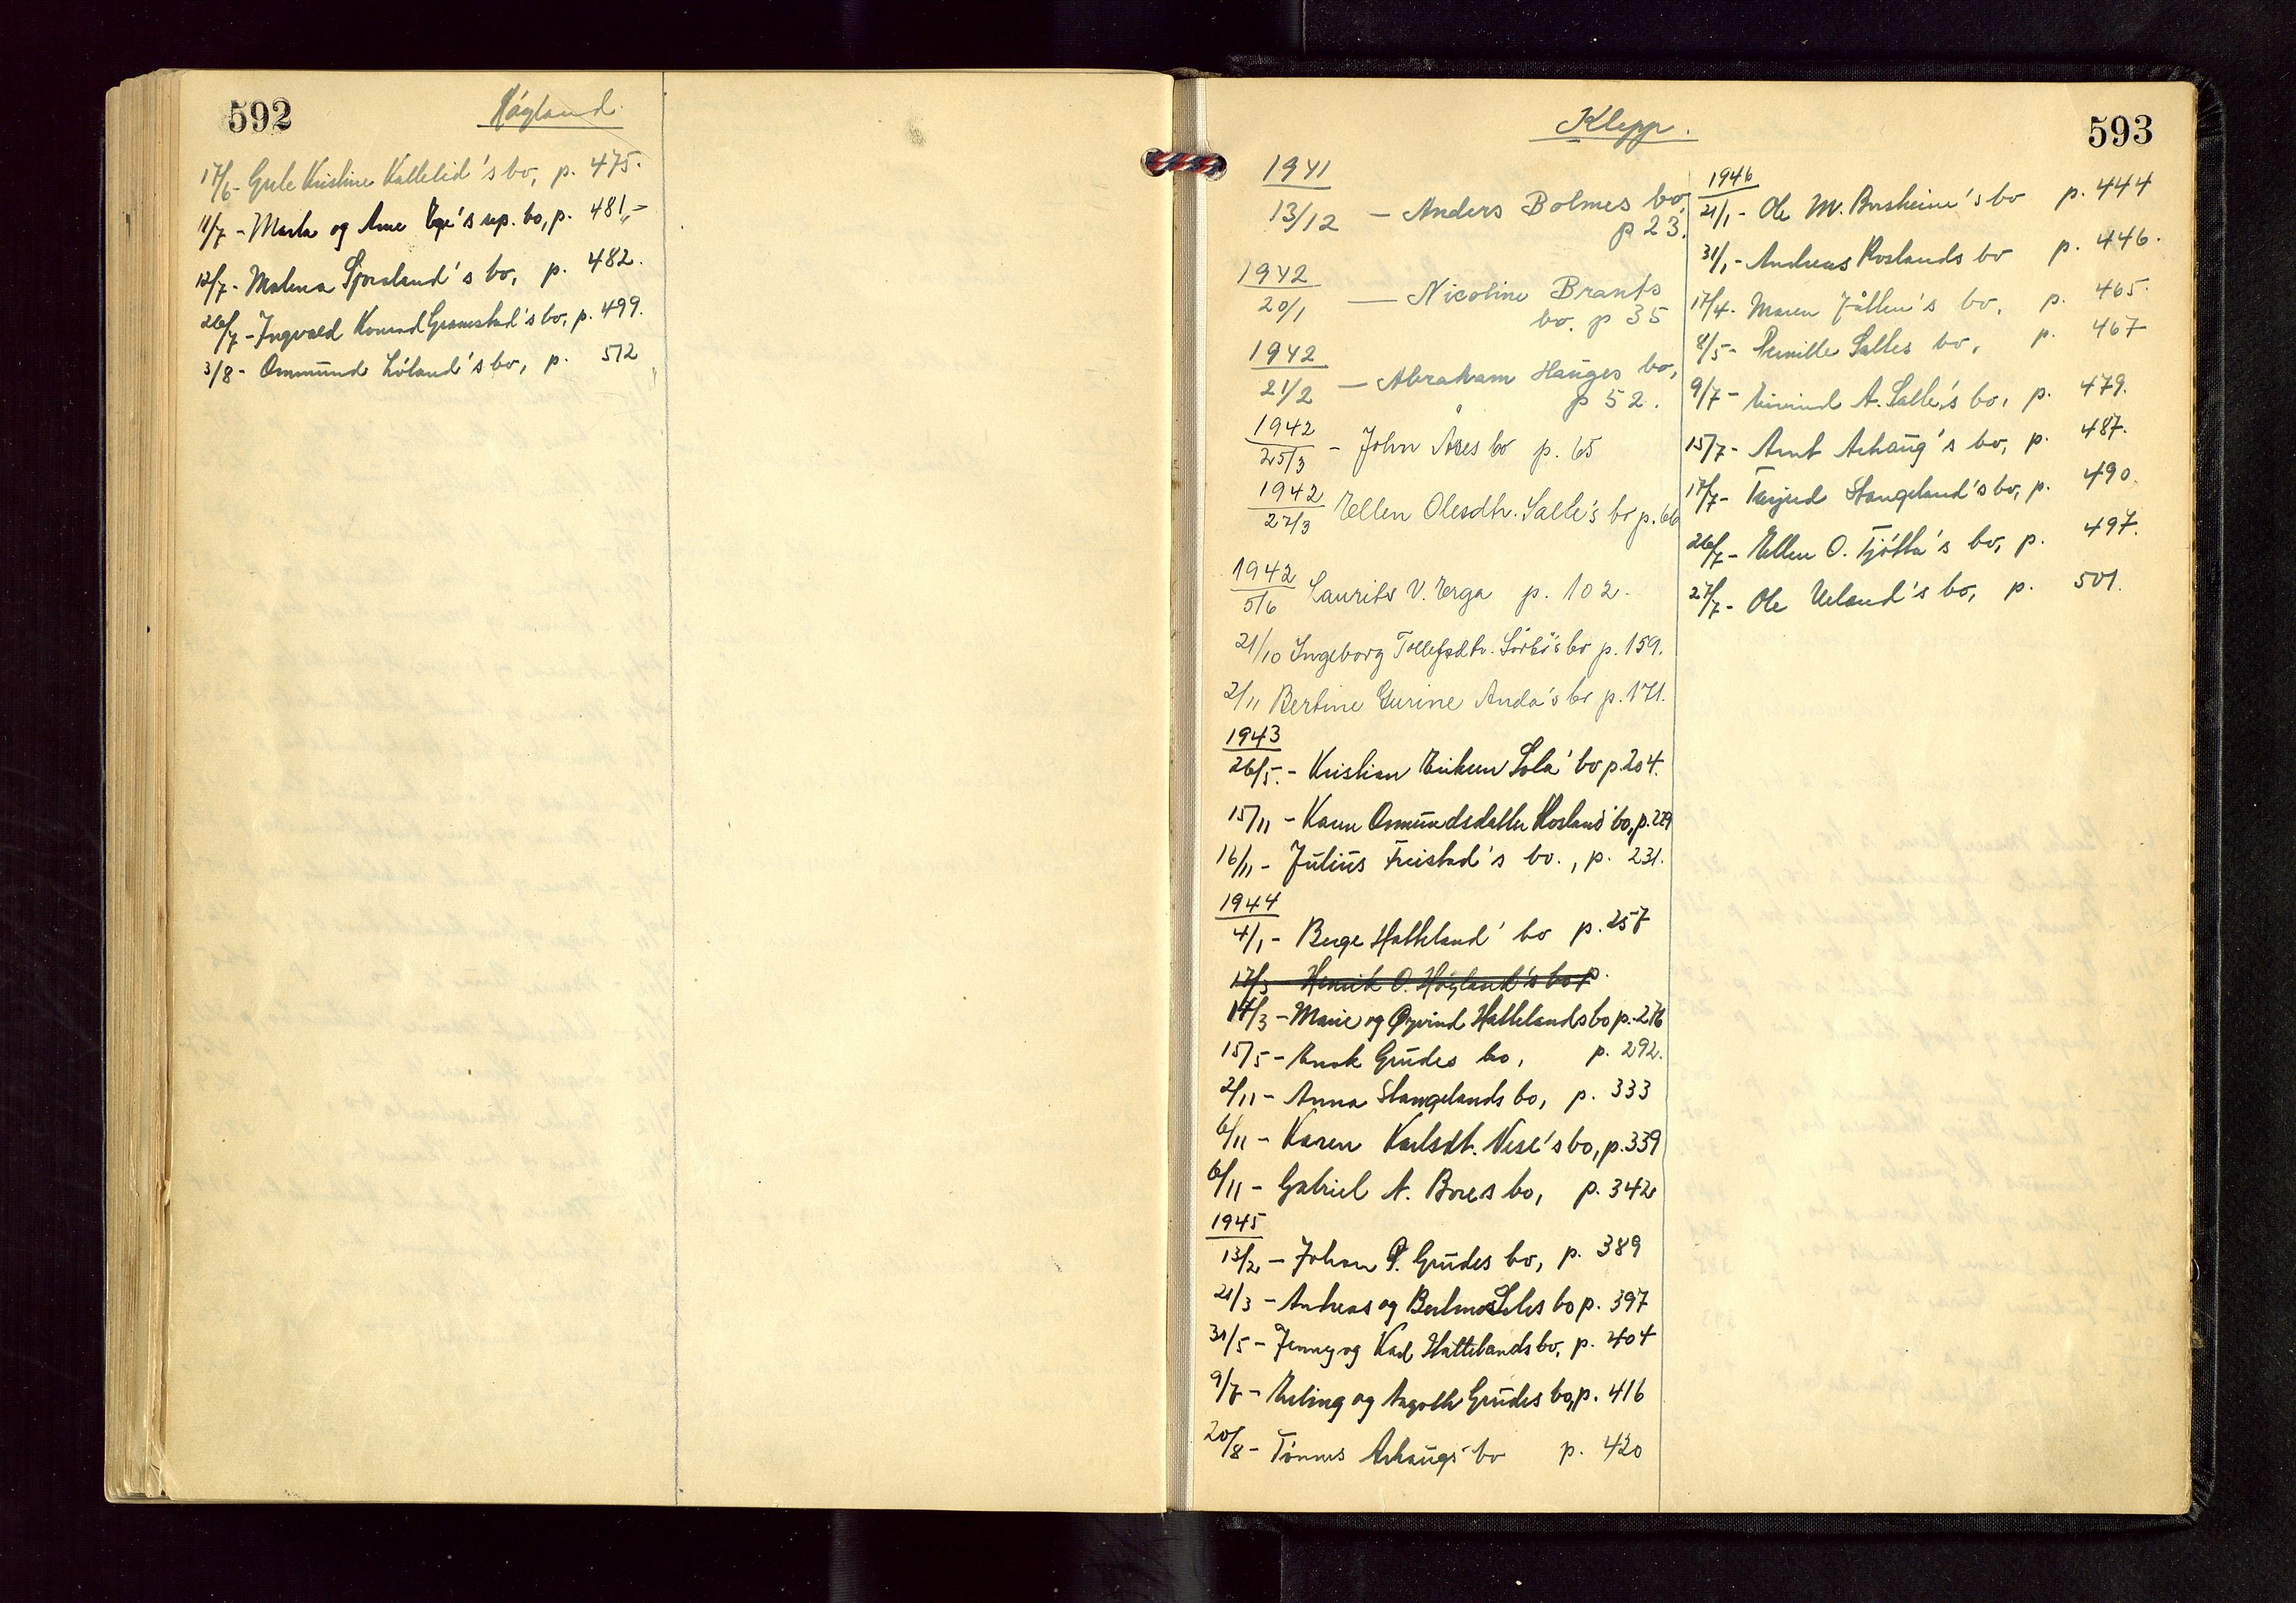 592
17/6 - Kristine Kallelid's bo, p. 475.
11/7 - Marta og Arne Ege's sep. bo, p. 481,-
12/7 - Malena bo, p. 482.
26/7 - Ingvald Konrad Gramstad's bo, p. 499.
3/8 - Ommund Lóland's bo, p. 512
Klepp.
593
1941
13/12 - Anders Bolmes bo,
p 23.
1942
20/1 - Nicoline Brants
bo. p 35
1942
21/2 - Abraham Hauges bo,
p 52.
1942
25/3 - John Ases bo p. 65
1942
27/3 Ellen Olesdtr. Salle's bo p. 66
1942
5/6 Laurits V. Erga p. 102.
21/10 Ingeborg Tollefsdtr. bo p. 159.
2/11 Bertine Gurine Anda's bo p. 171.
1943
26/5. - Kristian Eriksen Sola' bo p 204.
15/11 - Karen Osmundsdatter Hosland' bo, p. 229
16/11 - Julius Freistad's bo., p. 231.
1944
4/1 - Berge Hatteland' bo p. 257
17/3 - Henrik O. Høyland's bo p.
14/3 - Marie og Øyvind Hattelands bo p. 276
15/5 - Enok Grudes bo, p. 292.
2/11 - Anna Stangelands bo, p. 333
6/11 - Karen Karlsdt. Vese's bo, p. 339
6/11 - Gabriel A. Bores bo, p. 342
1945
13/2 - Johan P. Grudes bo, p. 389
21/3 - Andreas og bo p. 397
31/5 - Jenny og Karl Hattelands bo, p. 404
9/7 - Erling og Grudes bo, p. 416
20/8 - Tönnes Arhaugs' bo p. 420
1946
21/1 - Ole M. Borsheim's bo p. 444
31/1 - Andreas Roslands bo p. 446.
17/4. Maren bo, p. 465.
8/5 - Pernille Salles bo, p. 467
9/7 - Eivind A. Salle's bo, p. 479.
15/7 - Arnt Arhaug's bo, p. 487.
17/7 - Stangeland's bo, p. 490.
26/7 - Ellen O. Tjótta's bo, p. 497.
27/7 - Ole Ueland's bo, p. 501.